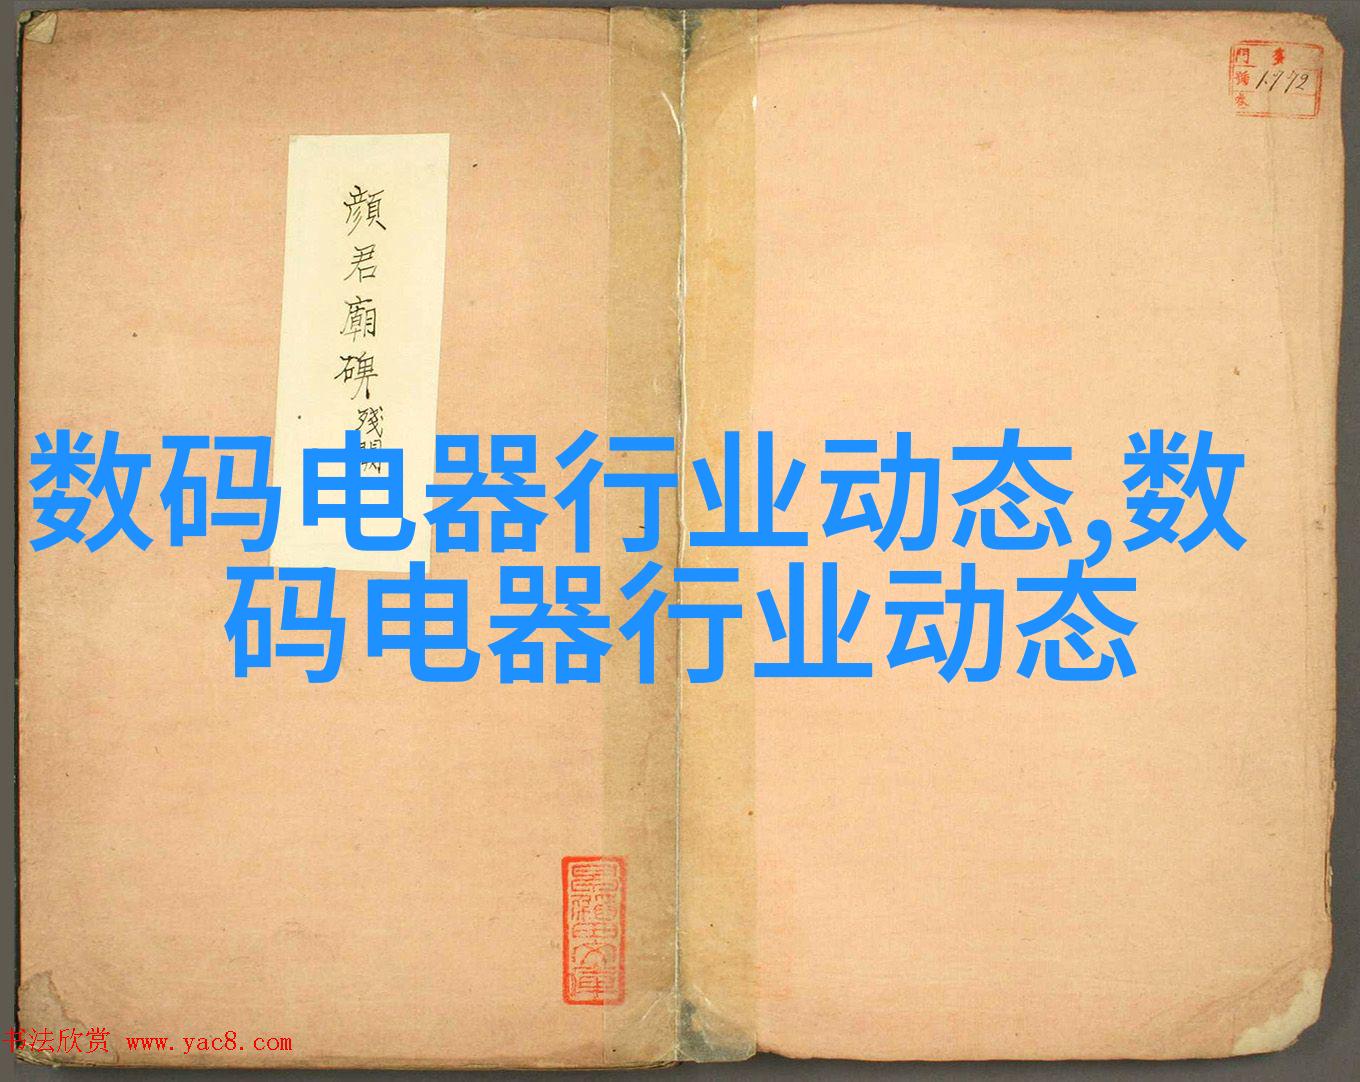 門 号
號 1772
顔君廟碑残闕
数码电器行业动态,数
码电器行业动态
书法欣赏 www.yac8.com